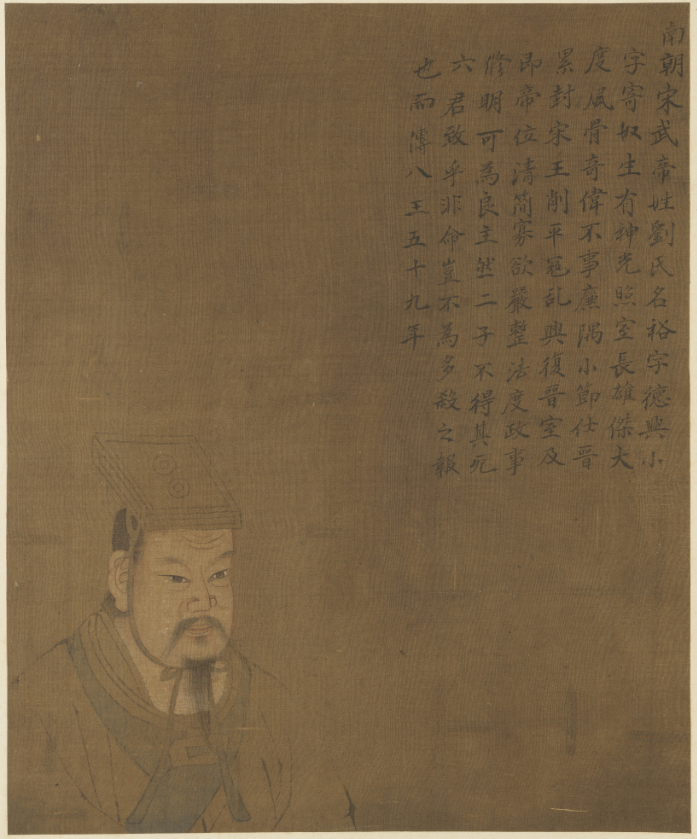 南朝宋武帝姓劉氏名裕字德輿小
字寄奴生有神光照室長雄傑大
度風骨奇偉不事廉隅小節仕晉
累封宋王削平冦乱興復晉室及
即帝位清簡寡欲嚴整法度政事
修明可為良主然二子不得其死
六君致乎非命豈不為多殺之報
也而傳八王五十九年